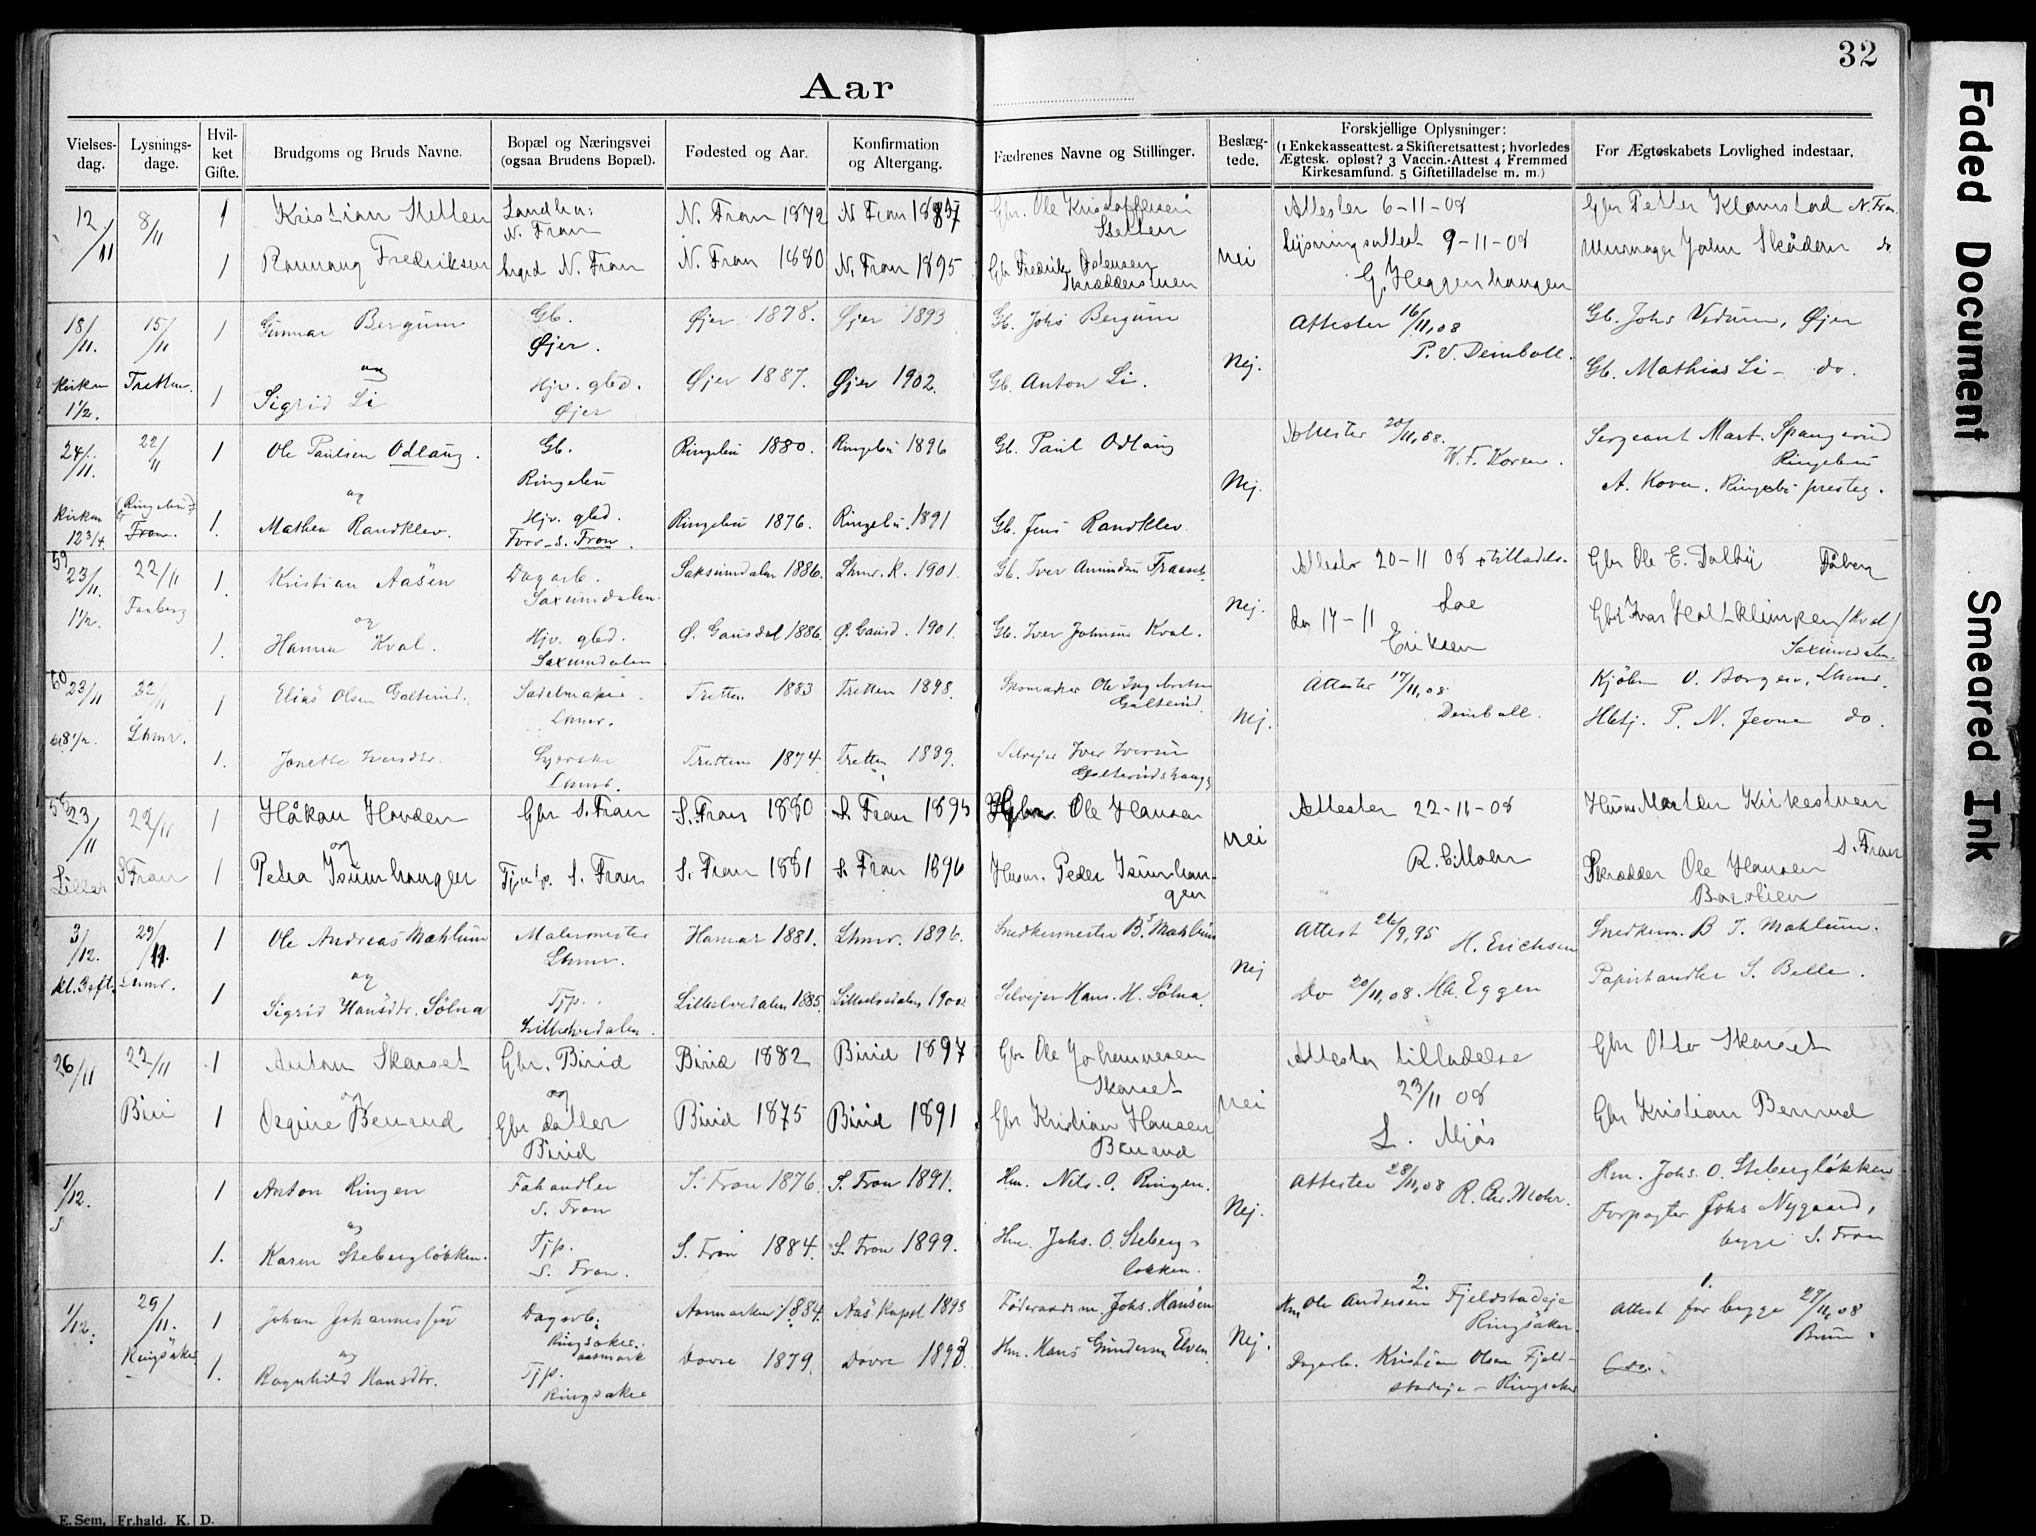 32
Aar
Vielses-dag. Lysnings-dage. Hvil-ket Gifte. Brudgoms og Bruds Navne. Bopæl og Næringsvei (ogsaa Brudens Bopæl). Fødested og Aar. Konfirmation og Altergang. Fædrenes Navne og Stillinger. Beslæg-tede. Forskjellige Oplysninger: (1 Enkekasseattest. 2 Skifteretsattest; hvorledes Ægtesk. opløst? 3 Vaccin.-Attest 4 Fremmed Kirkesamfund. 5 Giftetilladelse m. m.) For Ægteskabets Lovlighed indestaar.
12/11 8/11 1 Kristian N. Fron 1872 N. Fron Gbr. Ole Attester 6-11-08 Gbr Petter Klomstad N. Fron
N. Fron
1 Fredriksen N. Fron N. Fron 1880 N. Fron 1895 Gbr Fredrik nei Lysningsattest 9-11-08 John do
G. Heggenhaugen
18/11. 15/11 1 Gunnar Bergum Gb. Øjer. Øjer 1878. Øjer 1893 Gb. Johs Bergum Attester 16/11,08 Gb. Johs Vedum, Øjer
P. V. Deinboll.
og
Kirken 1 1/2. Tretten. 1 Sigrid Li Hjv. gbd. Øjer Øjer 1887. Øjer 1902. Gb. Anton Li. Nej. Gb. Mathias Li - do.
24/11. 22/11 1 Ole Paulsen Odlaug. Gb. Ringebu Ringebu 1880. Ringebu 1896 Gb. Paul Odlaug Attester 20/11,08. Sergeant Mart.
W. F. Koren. Ringebu
og
Kirken 12 3/4. Ringebu Fron. 1. Mathea Randklev. Hjv. gbd. S. Fron. Ringebu 1876. Ringebu. 1891 Gb. Jens Randklev. Nej. A. Koren, Ringebu presteg.
59
23/11. 22/11 1. Kristian Aasen Dagarb. Saxumdalen. Saksumdalen 1886. Lhmr. K. 1901. Gb. Iver Amundsen Attester 20-11 08 + tilladels. Gbr Ole E. Dalby Fåberg
1 1/2. Faaberg og
1. Hanna Kval. Hjv. gbd. Saxumdalen Ø. Gausdal 1886. Ø. Gausd. 1901. Gb. Iver Johnsen Kval. Nej. den 14-11 Gbr Ivar
Eriksen Saxumdalen.
60
23/11 22/11 1 Elias Olsen Sadelmaker Lhmr. Tretten 1883 Tretten 1898. Skomaker Ole Attester 17/11,08 Kjøbm. O. Borgen, Lhmr.
Lhmr. Nej. Deinboll. Hbtj. P. N. Jevne do.
1. Jonette Iversdtr. Syerske Lhmr. Tretten 1874. Tretten 1889. Selvejer Iver Iversen
23/11 22/11 1 Håkon Hovden Gbr S. Fron S. Fron 1880 S. Fron 1895 Ole Hansen Attester 22-11-08 Husm Morten Kirkestuen
og nei S. Fron
Liller S Fron 1 Petra Isumhaugen S. Fron S. Fron 1881 S. Fron 1896 Husm. Peder Isumhaugen Skrædder Ole Hansen
3/12. 29/11 1 Ole Andreas Mæhlum Malermester Lhmr. Hamar 1881. Lhmr. 1896. Snedkermester B. Mæhlum Attest 26/9,95 H. Erichsen Snedkerm. B. T. Mæhlum.
og
kl. 3 eft. Lhmr. 1 Sigrid Hansdtr. Sølna Tjp. Lilleelvedalen. Lilleelvedalen 1885. Lilleelvedalen 1900. Selvejer Hans H. Sølna. Nej Do 20/11,08. Eggen Papirhandler S. Belle.
26/11 22/11 1 Anton Skarset Gbr. Birid Birid 1882 Birid 1897 Gbr Ole Johannesen Skarset Attester tilladelse Gbr Otto Skarset
23/11 08
Biri og og nei
1 Berrud Gbr datter Birid Birid 1875 Birid 1891 Gbr Kristian Hansen Berrud L. Mjøs Gbr Kristian Berrud
1/12. 1 Anton Ringen Fæhandler S. Fron S. Fron 1876. S. Fron 1891. Hm. Nils O. Ringen. Attester 28/11,08 R. Chr. Mohr. Hm. Johs. O. Stebergløkken
og Nej.
1. Karen Stebergløkken. Tjp. S. Fron. S. Fron 1884. S. Fron 1899. Hm. Johs. O. Steberg-løkken. Forpagter Johs Nygaard, begge S. Fron
2. 1.
1/12. 29/11. 1 Johan Johannessen Dagarb. Ringsaker. Aasmarken 1884. Aas Kapel 1898 Føderaadsm. Johs. Hansen Hm Ole Andersen Fjeldstadeje Ringsaker. Attest for begge 27/11,08
Bruun.
Ringsaker og Nej.
1. Ragnhild Hansdtr. Tjp. Ringsaker Dovre 1879. Dovre 1893. Hm. Hans Gundersen Elven Dagarb. Kristian Olsen Fjeld-stadeje - Ringsaker
E. Sem, Fr.hald. K. D.
Faded Document
Smeared Ink